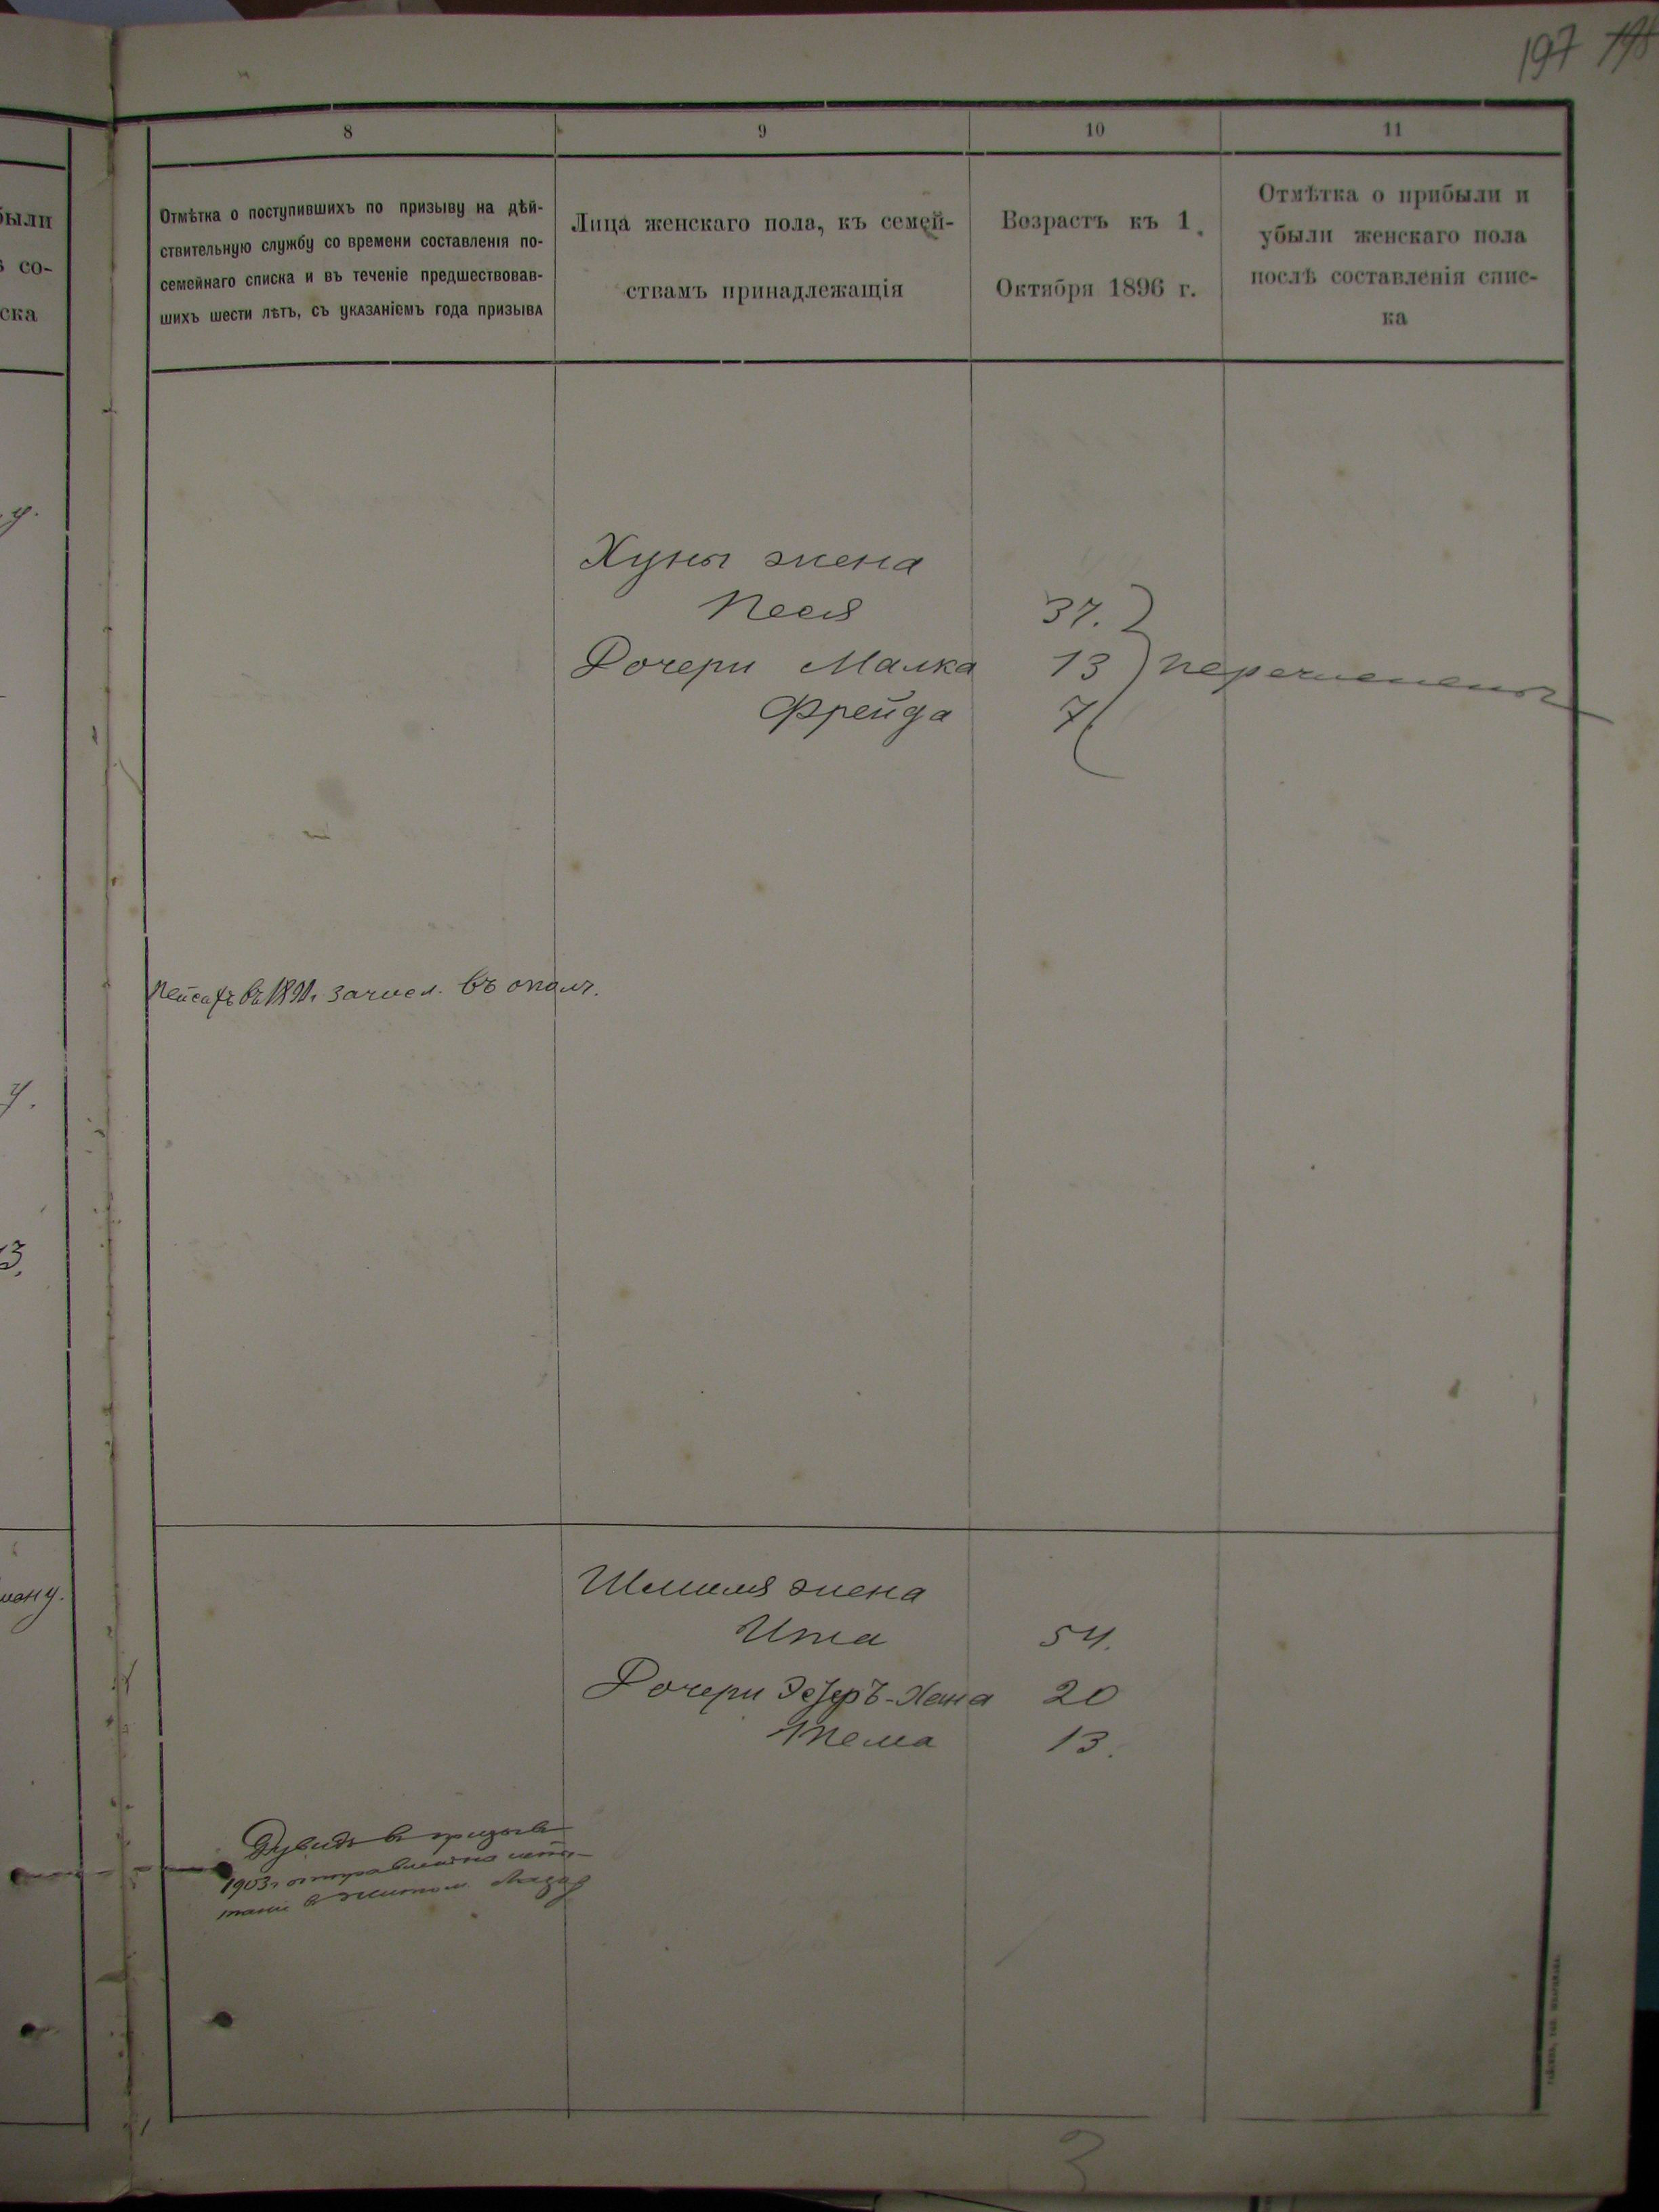 197 198
8
9
10
11
Отмѣтка о поступившихъ по призыву на дѣй-
ствительную службу со времени составленія по-
семейнаго списка и въ теченіе предшествовав-
шихъ шести лѣтъ, съ указаніемъ года призыва
Лица женскаго пола, къ семей-
ствамъ принадлежащія
Возрастъ къ 1
Октября 1896 г.
Отмѣтка о прибыли и
убыли женскаго пола
послѣ составленія спис-
ка
были
со-
ска
у.
Хуны жена
Песя 37.
Дочери Малка 13 перечислены
Фрейда 7
Пейсахъ въ 1891г. зачисл. въ ополч.
у.
3.
Шмиля жена
Ита 54.
Дочери Эстеръ-Хана 20
Тема 13.
Дувидъ въ призывъ
1903г отправленъ на испы-
таніе в Житом.